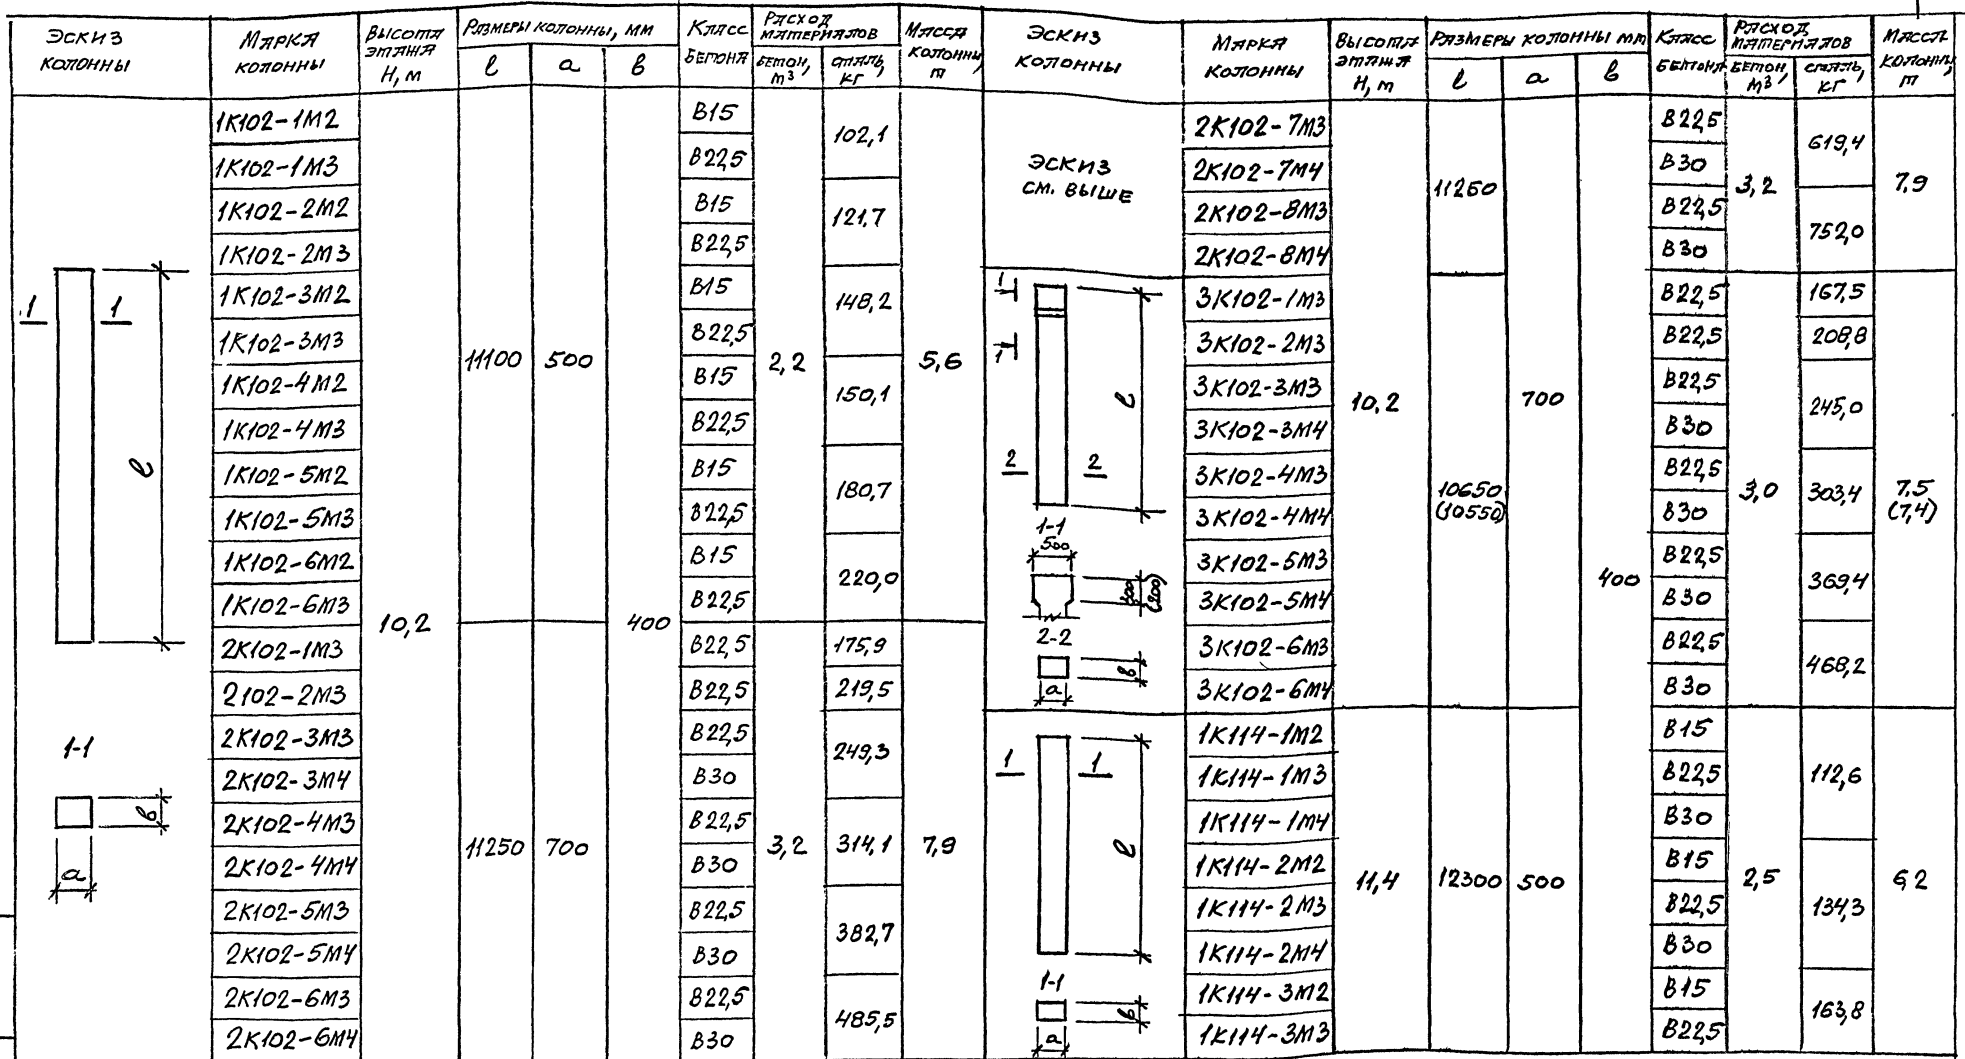 ЭСКИЗ КОЛОННЫ | МАРКА КОЛОННЫ | ВЫСОТА ЭТАЖА Н, м | РАЗМЕРЫ КОЛОННЫ, мм | КЛАСС БЕТОНА | РАСХОД МАТЕРИАЛОВ | МАССА КОЛОННЫ, т
ℓ | а | в | БЕТОН, м³ | СТАЛЬ, кг
1К102-1М2 | 10,2 | 11100 | 500 | 400 | В15 | 2,2 | 102,1 | 5,6
1К102-1М3 | В22,5
1К102-2М2 | В15 | 121,7
1К102-2М3 | В22,5
1К102-3М2 | В15 | 148,2
1К102-3М3 | В22,5
1К102-4М2 | В15 | 150,1
1К102-4М3 | В22,5
1К102-5М2 | В15 | 180,7
1К102-5М3 | В22,5
1К102-6М2 | В15 | 220,0
1К102-6М3 | В22,5
2К102-1М3 | 11250 | 700 | В22,5 | 3,2 | 175,9 | 7,9
2102-2М3 | В22,5 | 219,5
2К102-3М3 | В22,5 | 249,3
2К102-3М4 | В30
2К102-4М3 | В22,5 | 314,1
2К102-4М4 | В30
2К102-5М3 | В22,5 | 382,7
2К102-5М4 | В30
2К102-6М3 | В22,5 | 485,5
2К102-6М4 | В30
1 1
ℓ
1-1
в
а
ЭСКИЗ КОЛОННЫ | МАРКА КОЛОННЫ | ВЫСОТА ЭТАЖА Н, м | РАЗМЕРЫ КОЛОННЫ мм | КЛАСС БЕТОНА | РАСХОД МАТЕРИАЛОВ | МАССА КОЛОННЫ, т
ℓ | а | в | БЕТОН, м³ | СТАЛЬ, кг
ЭСКИЗ
СМ. ВЫШЕ
2К102-7М3 | 10,2 | 11250 | 700 | 400 | В22,5 | 3,2 | 619,4 | 7,9
2К102-7М4 | В30
2К102-8М3 | В22,5 | 752,0
2К102-8М4 | В30
3К102-1М3 | 10650 (10550) | В22,5 | 3,0 | 167,5 | 7,5 (7,4)
3К102-2М3 | В22,5 | 208,8
3К102-3М3 | В22,5 | 245,0
3К102-3М4 | В30
3К102-4М3 | В22,5 | 303,4
3К102-4М4 | В30
3К102-5М3 | В22,5 | 369,4
3К102-5М4 | В30
3К102-6М3 | В22,5 | 468,2
3К102-6М4 | В30
1
1
ℓ
2 2
1-1
500
(200)
2-2
в
а
1К114-1М2 | 11,4 | 12300 | 500 | В15 | 2,5 | 112,6 | 6,2
1К114-1М3 | В22,5
1К114-1М4 | В30
1К114-2М2 | В15 | 134,3
1К114-2М3 | В22,5
1К114-2М4 | В30
1К114-3М2 | В15 | 163,8
1К114-3М3 | В22,5
1 1
ℓ
1-1
в
а